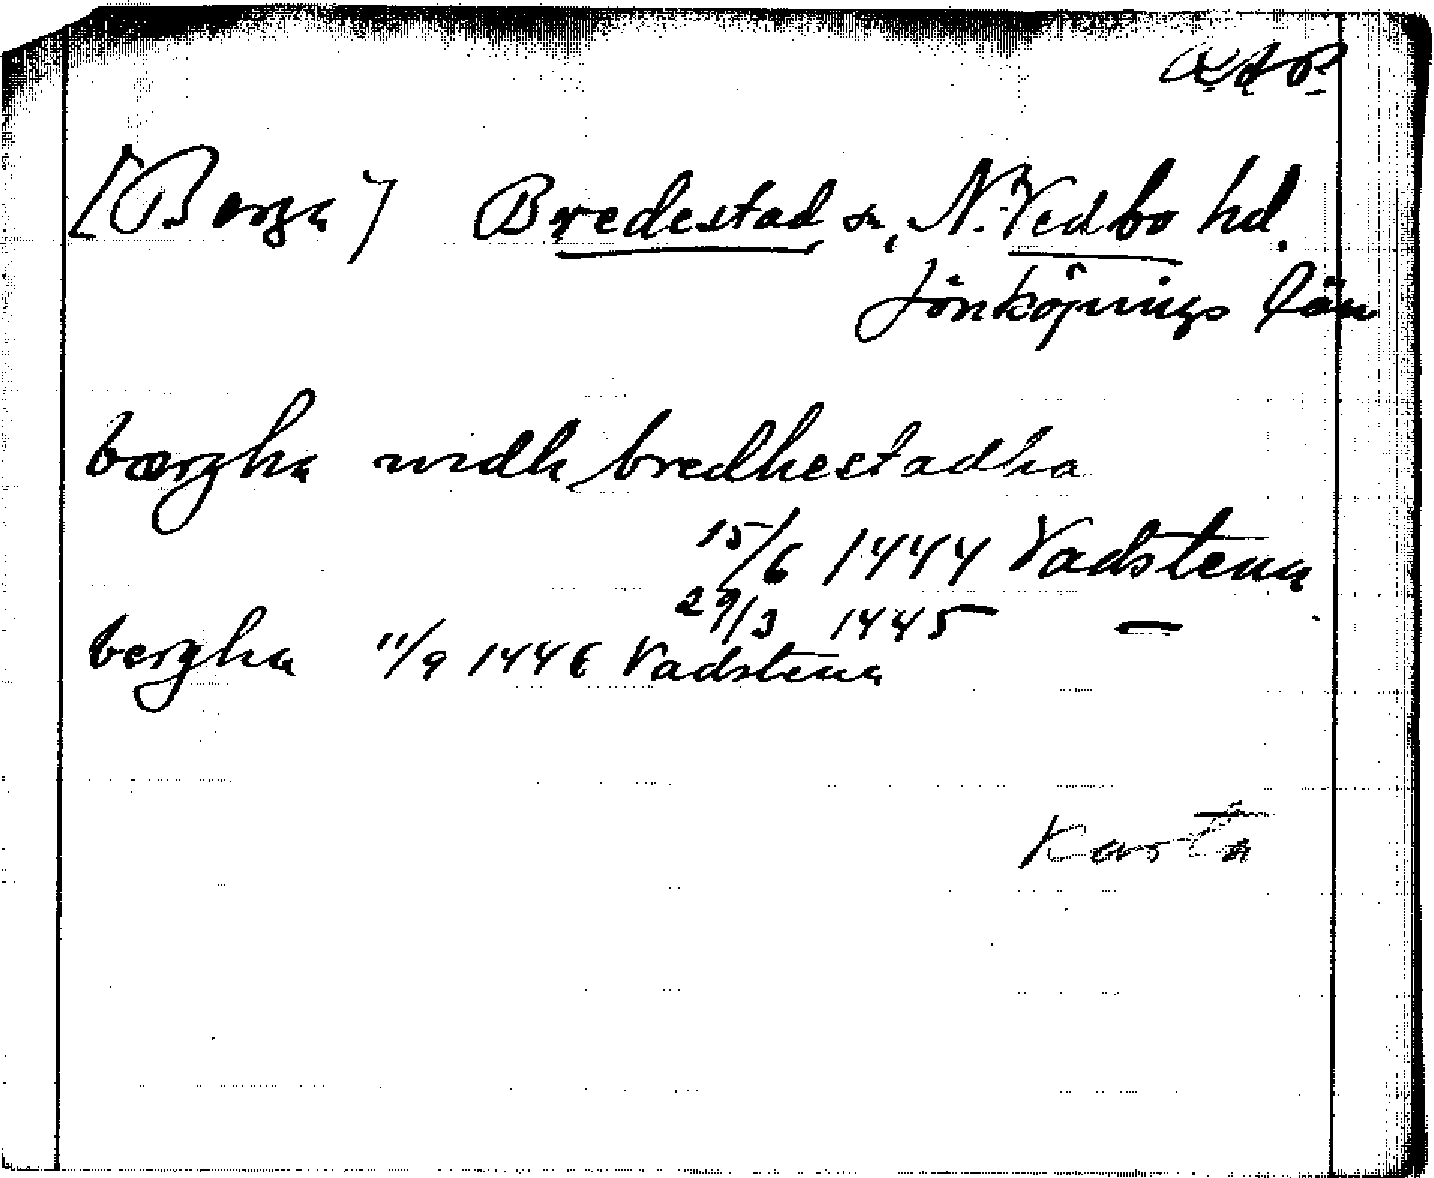 R.A.P.
[Berga] Bredestad sn, N. Vedbo hd.
Jönköpings län
bærgha widh bredhestadha
15/6 1444 Vadstena
29/3 1445 —
bergha 11/9 1446 Vadstena
Karta